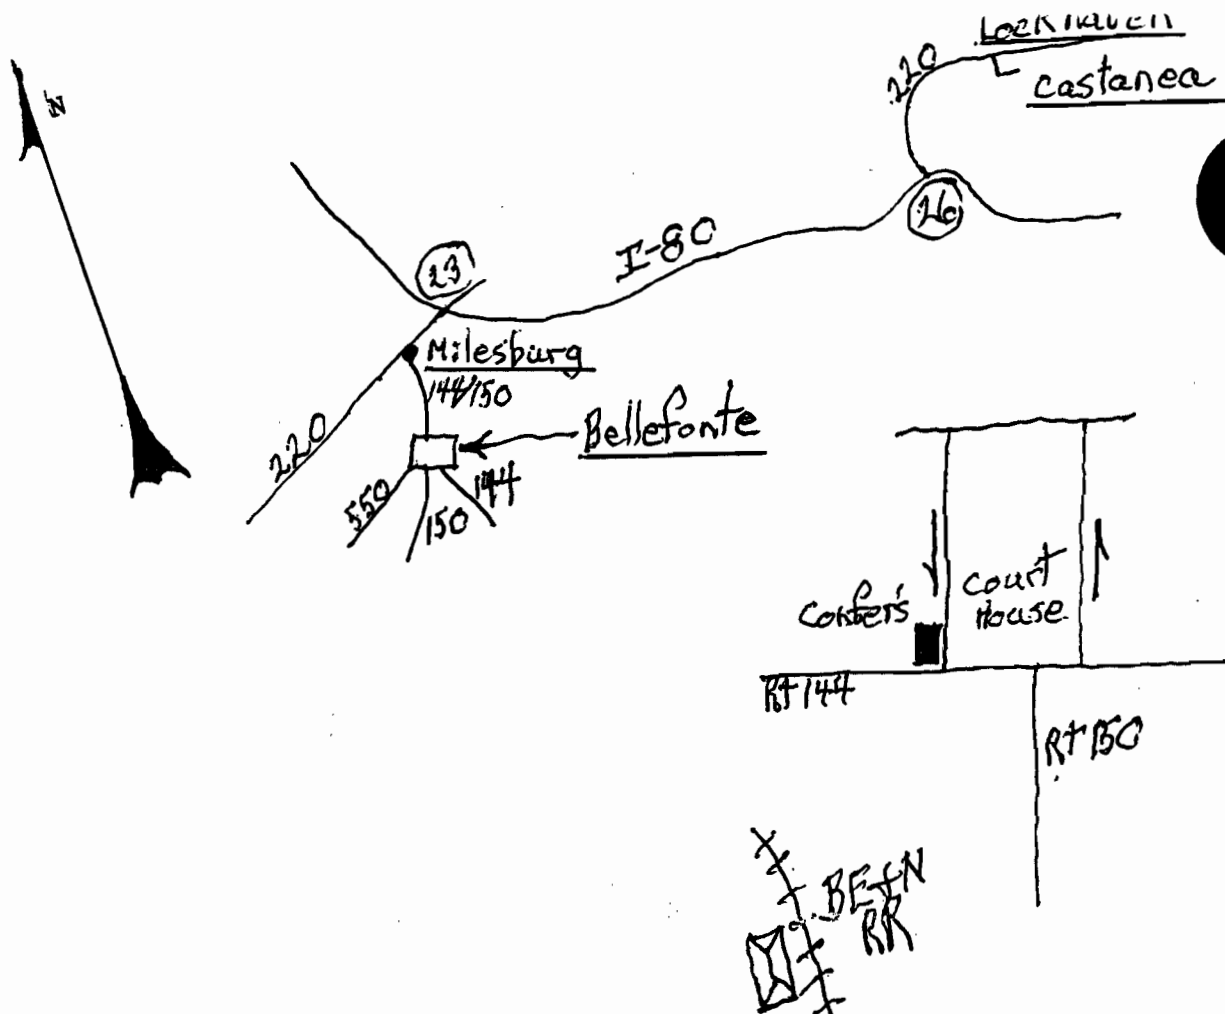 Lock Haven
220
Castanea
N
26
I-80
23
Milesburg
144/150
220
Bellefonte
550
150
144
Confer's
Court
House
Rt 144
Rt 150
BE+N
RR